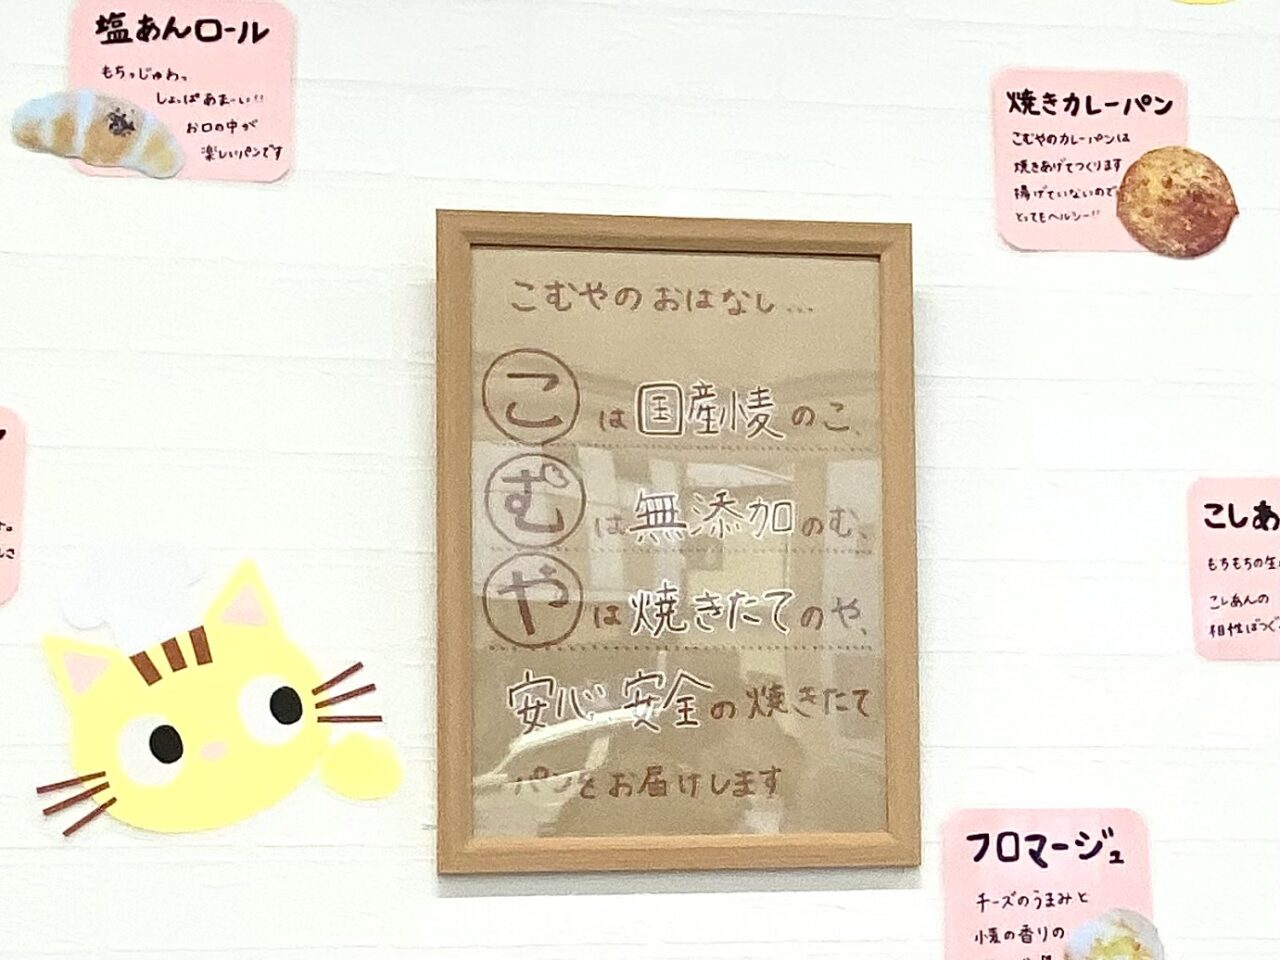 塩あんロール
もちっじゅわっ
しょっぱあまーい!!
お口の中が
楽しいパンです
焼きカレーパン
こむやのカレーパンは
焼きあげてつくります
揚げていないので
とってもヘルシー!!
こむやのおはなし...
こは国産小麦のこ、
むは無添加のむ、
やは焼きたてのや、
安心、安全の焼きたて
パンをお届けします
こしあ
もちもちの生
こしあんの
相性ばつぐ
フロマージュ
チーズのうまみと
小麦の香りの